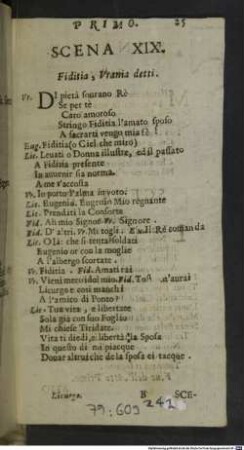 PRIMO. 25
SCENA XIX.
Fiditia, Vrania detti.
Vr. DI pietà sourano Rè
Se per tè
Caro amoroso
Stringo Fiditia l'amato sposo
A sacrarti vengo mia fè
Eug. Fiditia (o Ciel che miro)
Lic. Leuati o Donna illustre, ed il passato
A Fiditia presente
In auuenir sia norma.
A me t'accosta
Vr. In porto l'alma in voto.
Lic. Eugenia. Eugenio Mio regnante
Lic. Prendati la Consorte
Fid. Ah mio Signor Vr. Signore.
Fid. D'altri. Vr. Mi toglie. Il Rè comanda
Lic. Olà: che si tenta? soldati
Eugenio or con la moglie
A l'albergo scortate.
Vr. Fiditia. Fid. Amati rai
Vr. Vieni meco idol mio. Fid. m'aurai
Licurgo e così manchi
A l'amico di Ponto?
Lic. Tua vita, e libertate
Sola già con suo Foglio
Mi chiese Tiridate.
Vita ti diedi, e libertà: la Sposa
In quello di na piacque
Donar altrui che de la sposa ei tacque.
Licurgo. B SCE-
79:609
242